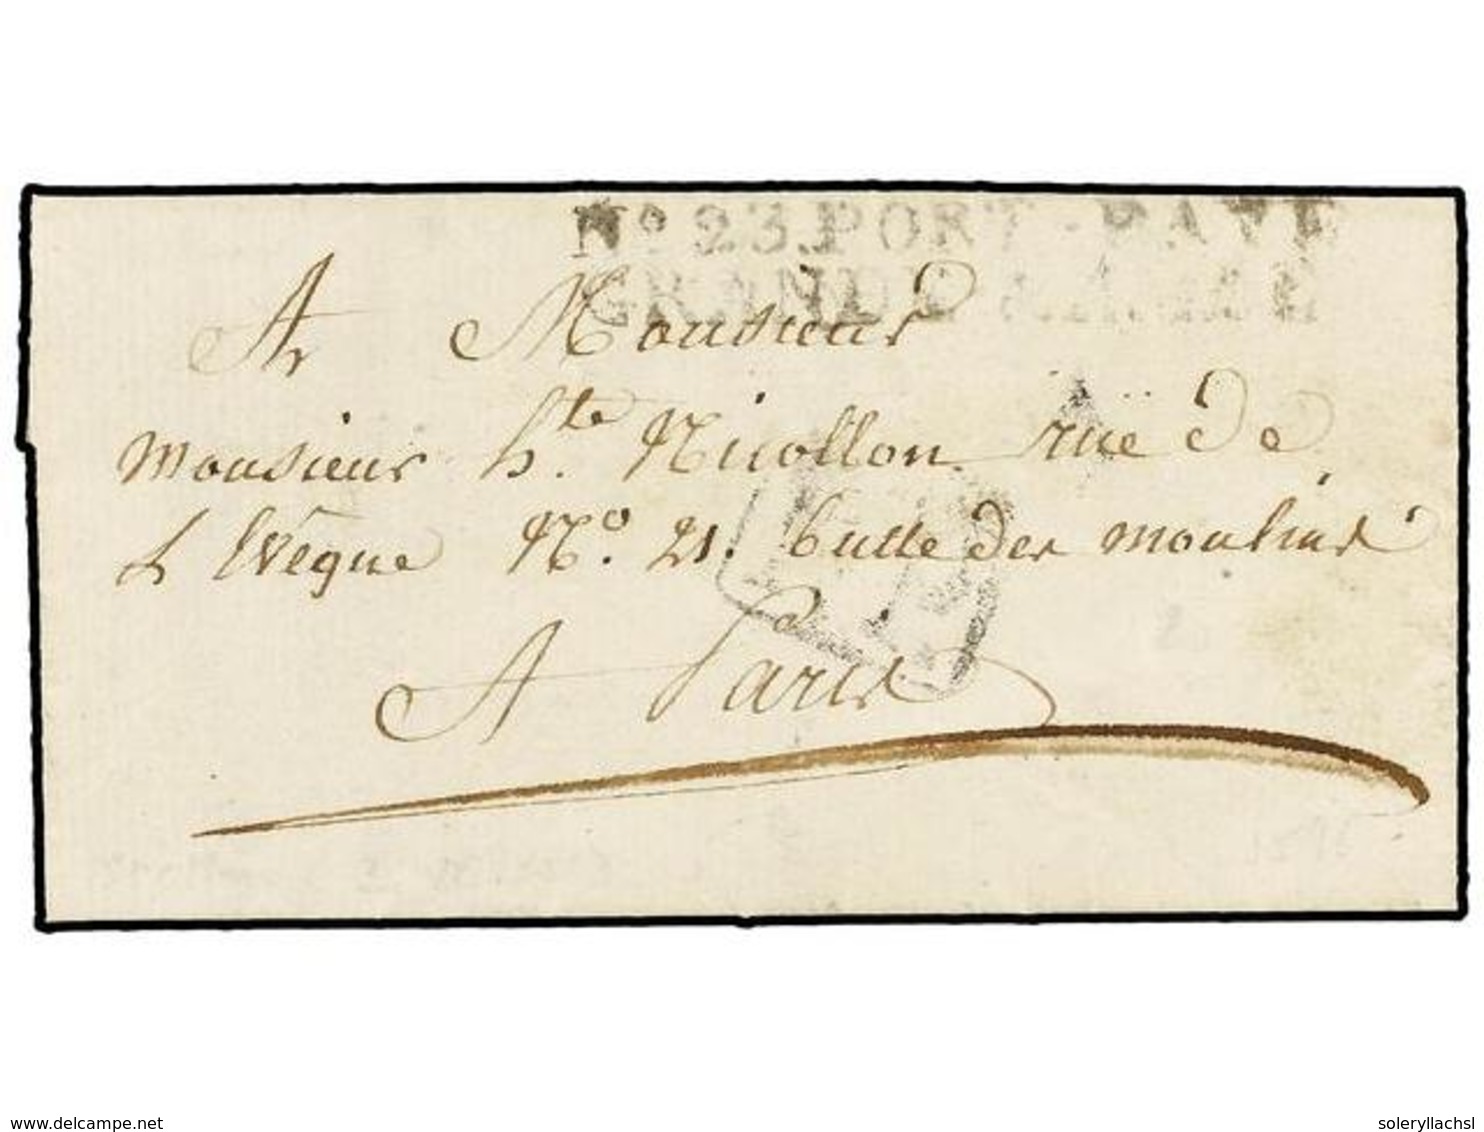 No 23. PORT-PAYÉ
GRANDE ARMÉE
A Monsieur
Monsieur h.te Nicollon rüe de
L'Evêque N.o 21. butte des moulins
A Paris
www.delcampe.net
soleryllachsl